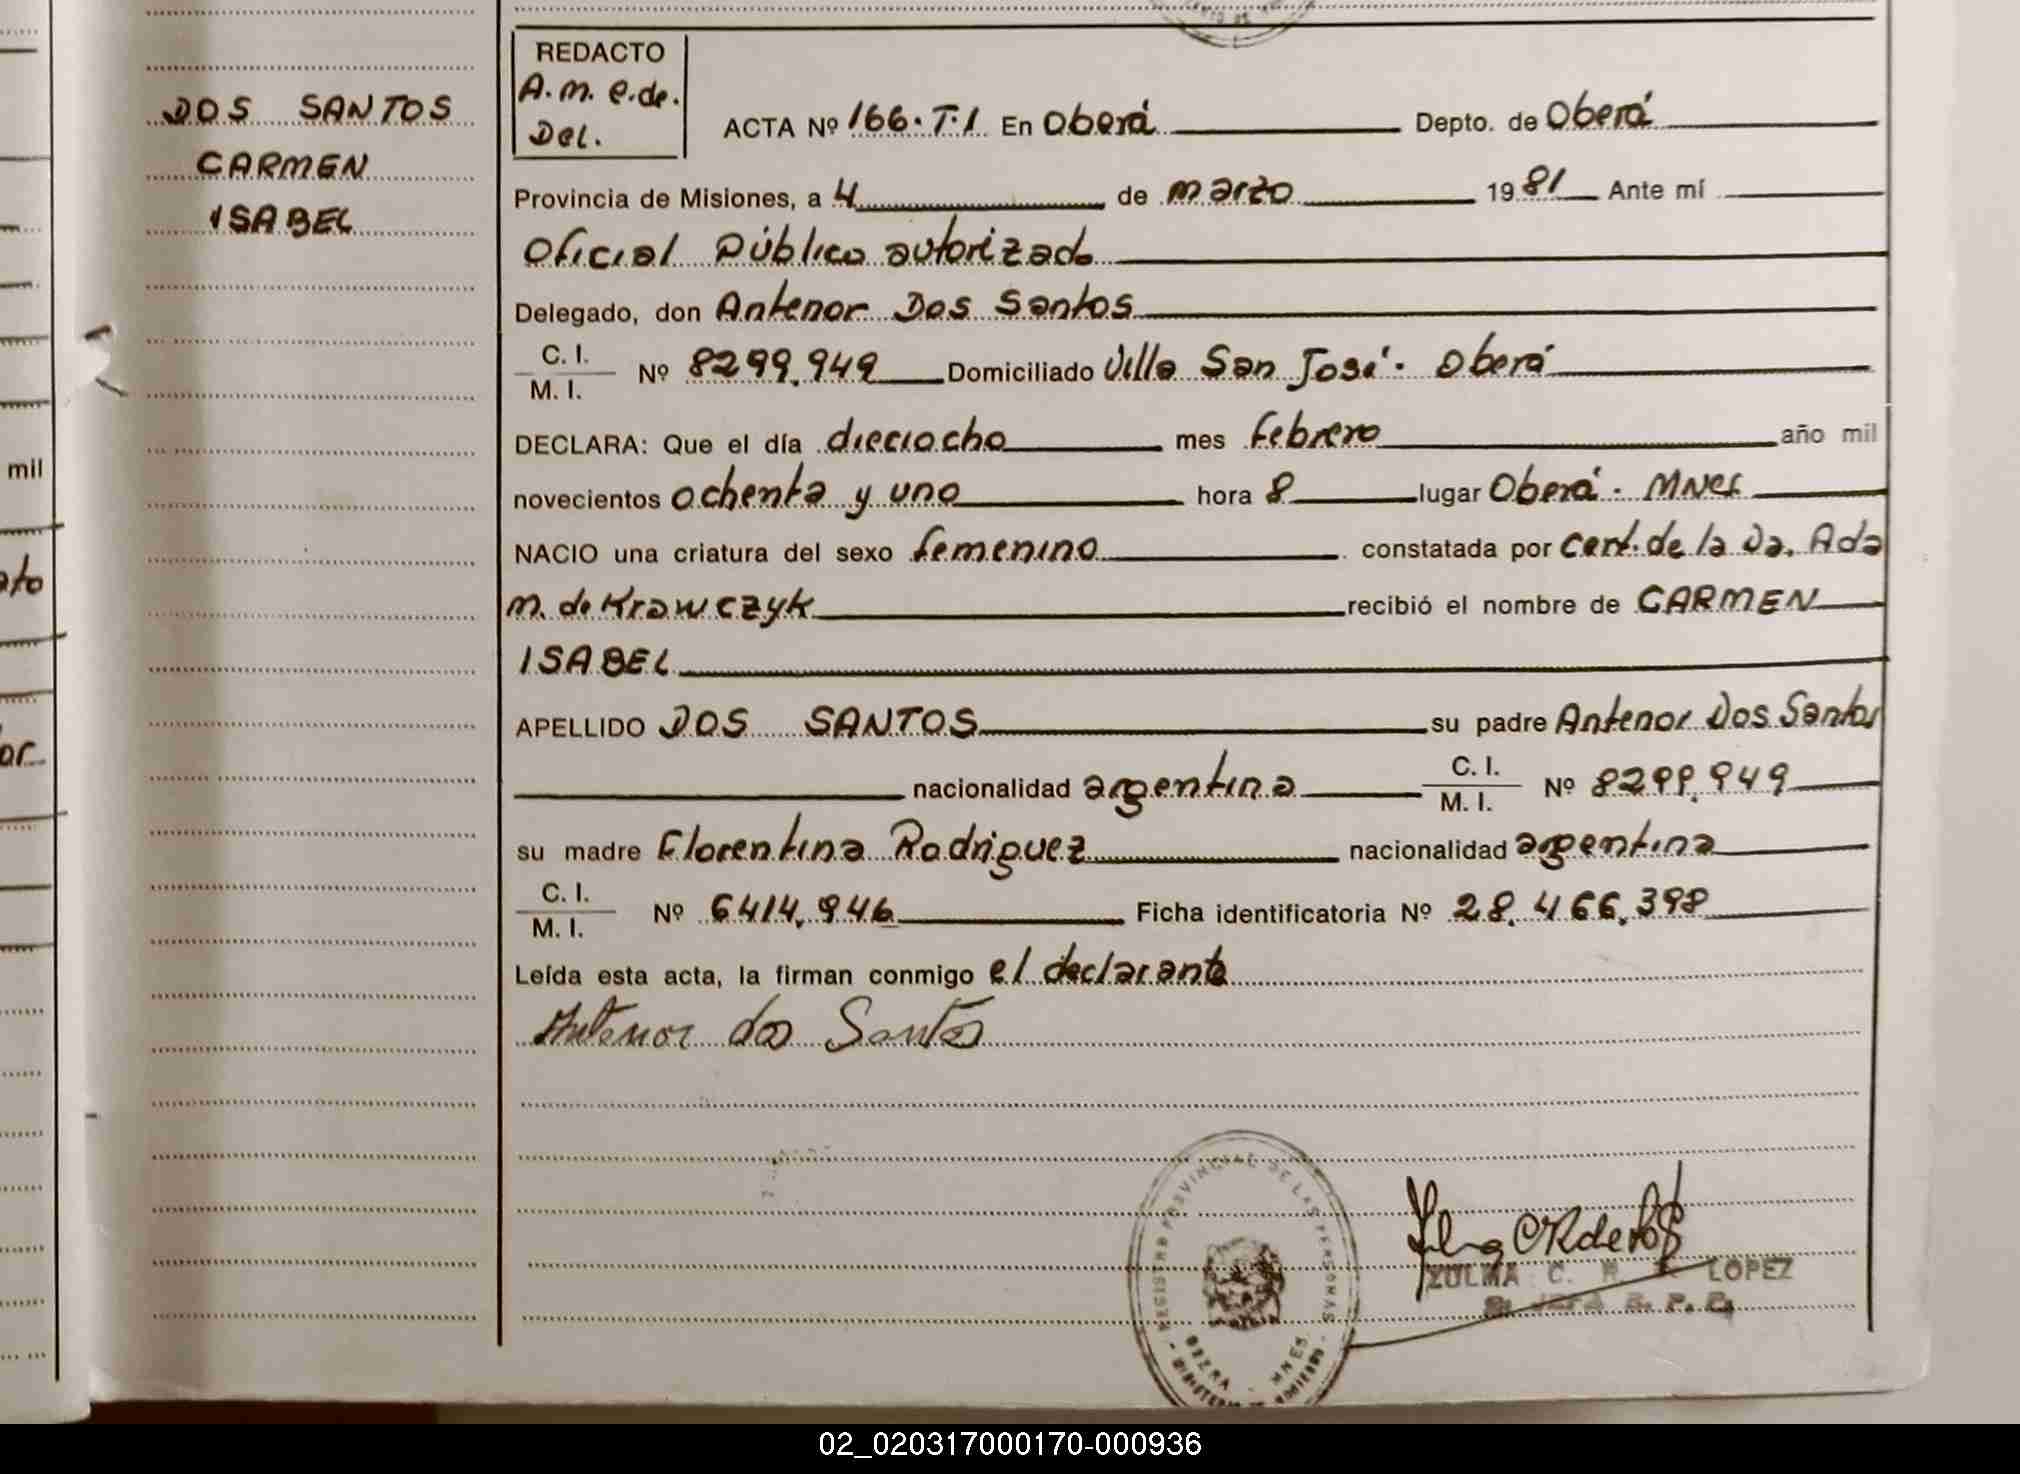 DOS SANTOS
CARMEN
ISABEL
REDACTO
A.M. e.de.
Del.
ACTA Nº 166.T.1 En Oberá Depto. de Oberá
Provincia de Misiones, a 4 de marzo 1981 Ante mí
Oficial Público autorizado
Delegado, don Antenor Dos Santos
C. I.
M. I.
Nº 8299.949 Domiciliado Villa San José. Oberá
DECLARA: Que el día dieciocho mes febrero año mil
novecientos ochenta y uno hora 8 lugar Oberá. MNes
NACIO una criatura del sexo femenino constatada por cert. de la Da. Ada
M. de Krawczyk recibió el nombre de CARMEN
ISABEL
APELLIDO DOS SANTOS su padre Antenor Dos Santos
nacionalidad argentina C. I.
M. I. Nº 8299.949
su madre Florentina Rodriguez nacionalidad argentina
C. I.
M. I.
Nº 6414.946 Ficha identificatoria Nº 28.466.398
Leída esta acta, la firman conmigo el declarante
Antenor dos Santos
REGISTRO PROVINCIAL DE LAS PERSONAS
OBERA MNES
ZULMA C. LOPEZ
JEFA R. P. P.
mil
02_020317000170-000936